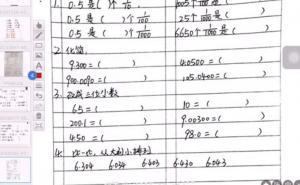 1. 0.5是( )个1/10. 
0.5是( )个1/100 25个1/100是( )
0.5是( )个1/1000 6650个1/1000是( )
2. 化简.
9.300=( ) 4.0500=( )
900.0090=( ) 105.0400=( )
3. 改成三位小数
65=( ) 10=( )
200.1=( ) 9.00300=( )
4.50=( ) 98.0=( )
4. 比一比,从大到小排列
6.304 6.034 6.403 6.430 6.043